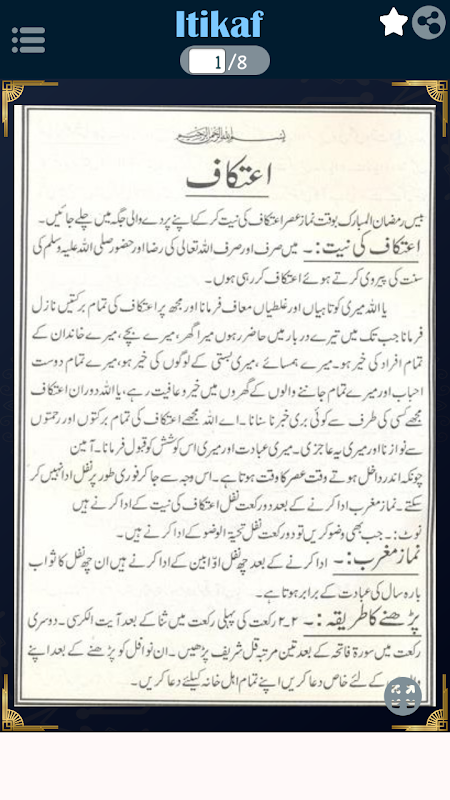 Itikaf
1/8
بسم اللہ الرحمن الرحیم
اعتکاف
بیس رمضان المبارک بوقت نماز عصر اعتکاف کی نیت کر کے اپنے پردے والی جگہ میں چلے جائیں۔
اعتکاف کی نیت:۔ میں صرف اور صرف اللہ تعالی کی رضا اور حضور صلی اللہ علیہ وسلم کی
سنت کی پیروی کرتے ہوئے اعتکاف کر رہی ہوں۔
یا اللہ میری کوتاہیاں اور غلطیاں معاف فرمانا اور مجھ پر اعتکاف کی تمام برکتیں نازل
فرمانا جب تک میں تیرے دربار میں حاضر رہوں میرا گھر، میرے بچے، میرے خاندان کے
تمام افراد کی خیر ہو۔ میرے ہمسائے ،میری بستی کے لوگوں کی خیر ہو، میرے تمام دوست
احباب اور میرے تمام جاننے والوں کے گھروں میں خیر و عافیت رہے، یا اللہ دوران اعتکاف
مجھے کسی کی طرف سے کوئی بری خبر نا سنانا۔ اے اللہ مجھے اعتکاف کی تمام برکتوں اور رحمتوں
سے نوازنا اور میری یہ عاجزی۔ میری عبادت اور میری اس کوشش کو قبول فرمانا۔ آمین
چونکہ اندر داخل ہوتے وقت عصر کا وقت ہوتا ہے۔ اس وجہ سے جا کر فوری طور پر نفل ادا نہیں کر
سکتے۔ نماز مغرب ادا کرنے کے بعد دو رکعت نفل اعتکاف کی نیت کے ادا کرنے ہیں
نوٹ:۔ جب بھی وضو کریں تو دو رکعت نفل تحیۃ الوضو کے ادا کرنے ہیں۔
نماز مغرب:۔ ادا کرنے کے بعد چھ نفل اوّابین کے ادا کرنے ہیں ان چھ نفل کا ثواب
بارہ سال کی عبادت کے برابر ہوتا ہے۔
پڑھنے کا طریقہ:۔ ۲-۲ رکعت کی پہلی رکعت میں ثنا کے بعد آیت الکرسی۔ دوسری
رکعت میں سورۃ فاتحہ کے بعد تین مرتبہ قل شریف پڑھیں۔ ان نوافل کو پڑھنے کے بعد اپنے
کے لئے خاص دعا کریں اپنے تمام اہل خانہ کیلئے دعا کریں۔